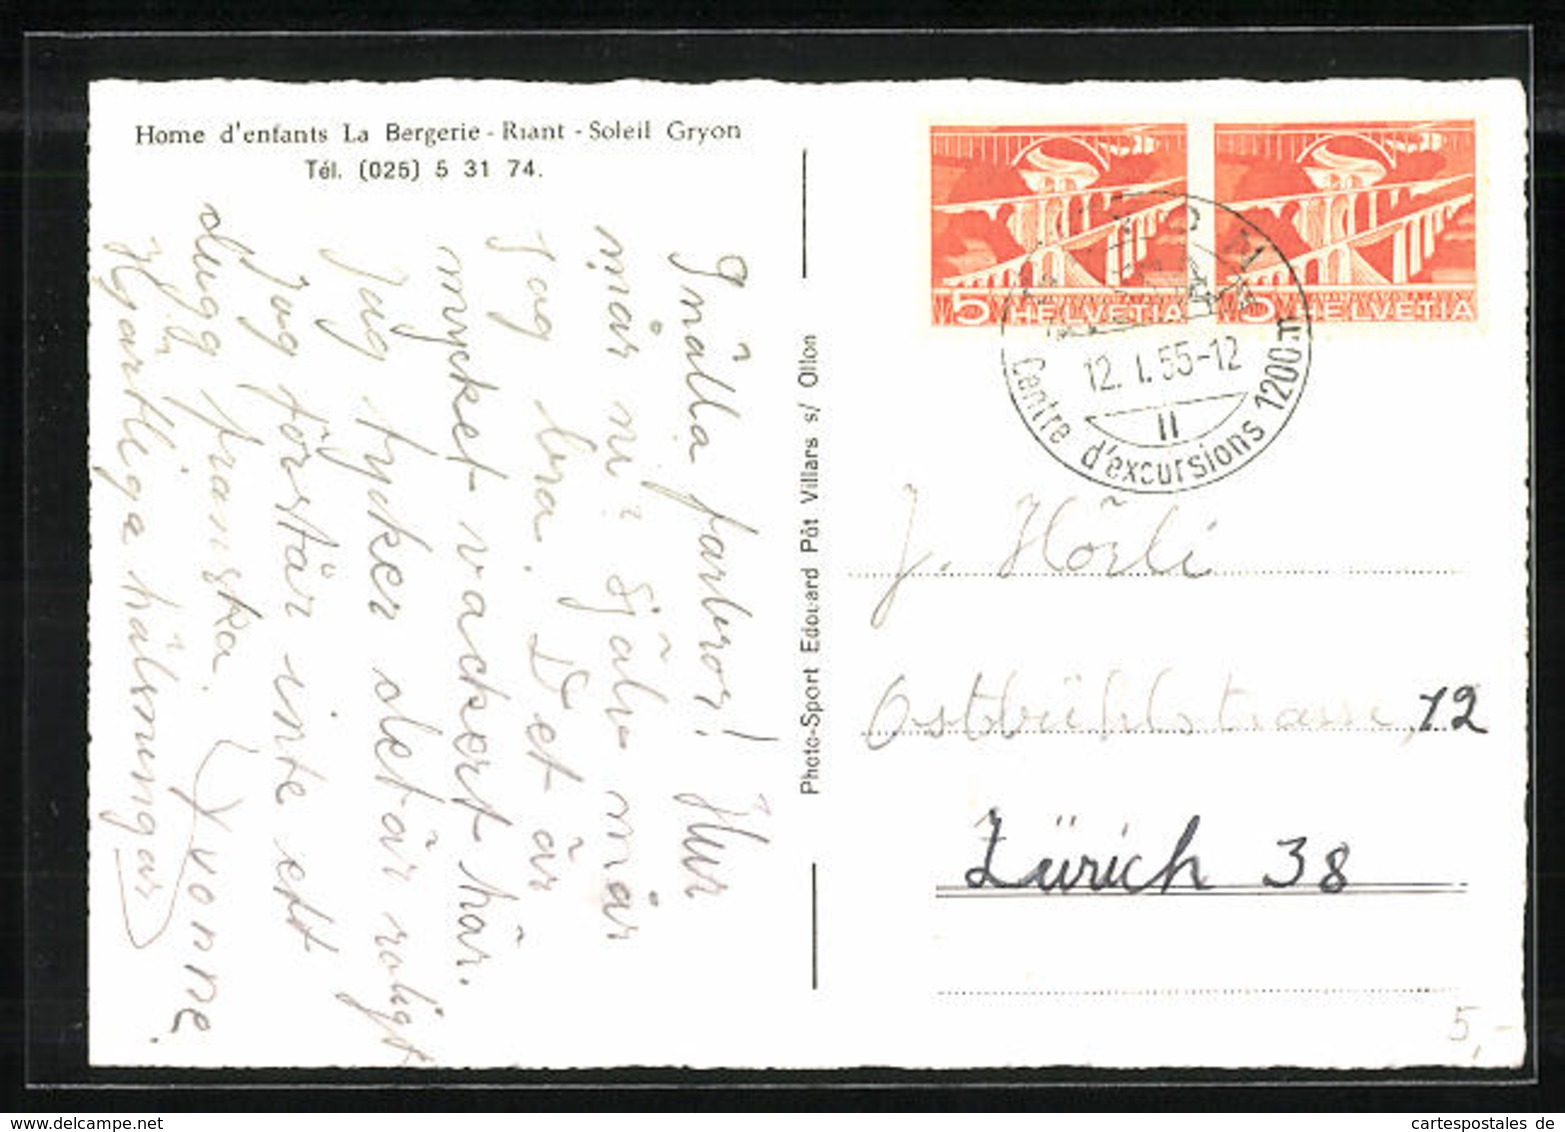 Home d'enfants La Bergerie - Riant - Soleil Gryon
Tél. (025) 5 31 74.
Snälla farbror! Hur
mår ni? Själv mår
jag bra. Det är
mycket vackert här.
Jag tycker det är roligt
Jag förstär inte ett
dugg franska.
Hjärtliga hälsningar
Yvonne.
Photo-Sport Edouard Pôt Villars s/ Ollon
5 HELVETIA
5 HELVETIA
GRYON
12. I. 55-12
II
Centre d'excursions 1200 m
J. Hösli
Ostbühlstrasse, 12
Zürich 38
5,-
cartespostales de